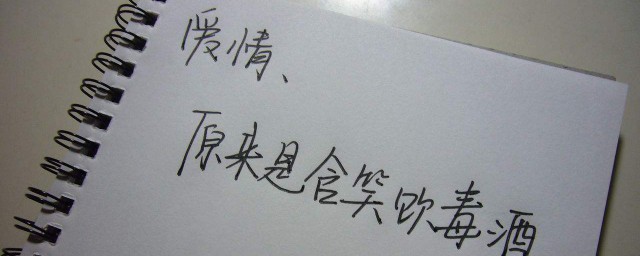 爱情、
原来是含笑饮毒酒